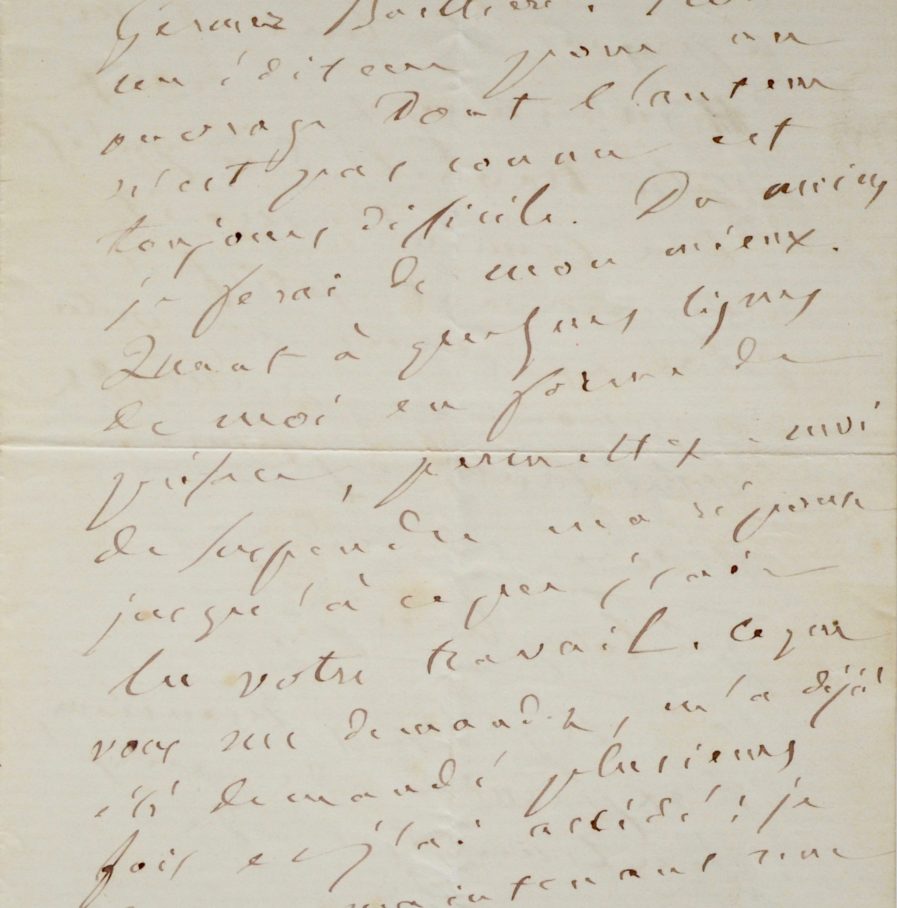 Germer Baillière.
un éditeur pour un
ouvrage Dont l'auteur
n'est pas connu est
toujours difficile. Du moins
je ferai de mon mieux.
Quant à quelques lignes
de moi en forme de
préface, permettez-moi
de suspendre ma réponse
jusqu'à ce que j'aie
lu votre travail. Ce que
vous me demandez, m'a déjà
été demandé plusieurs
fois et j'ai accédé ; je
maintenant une